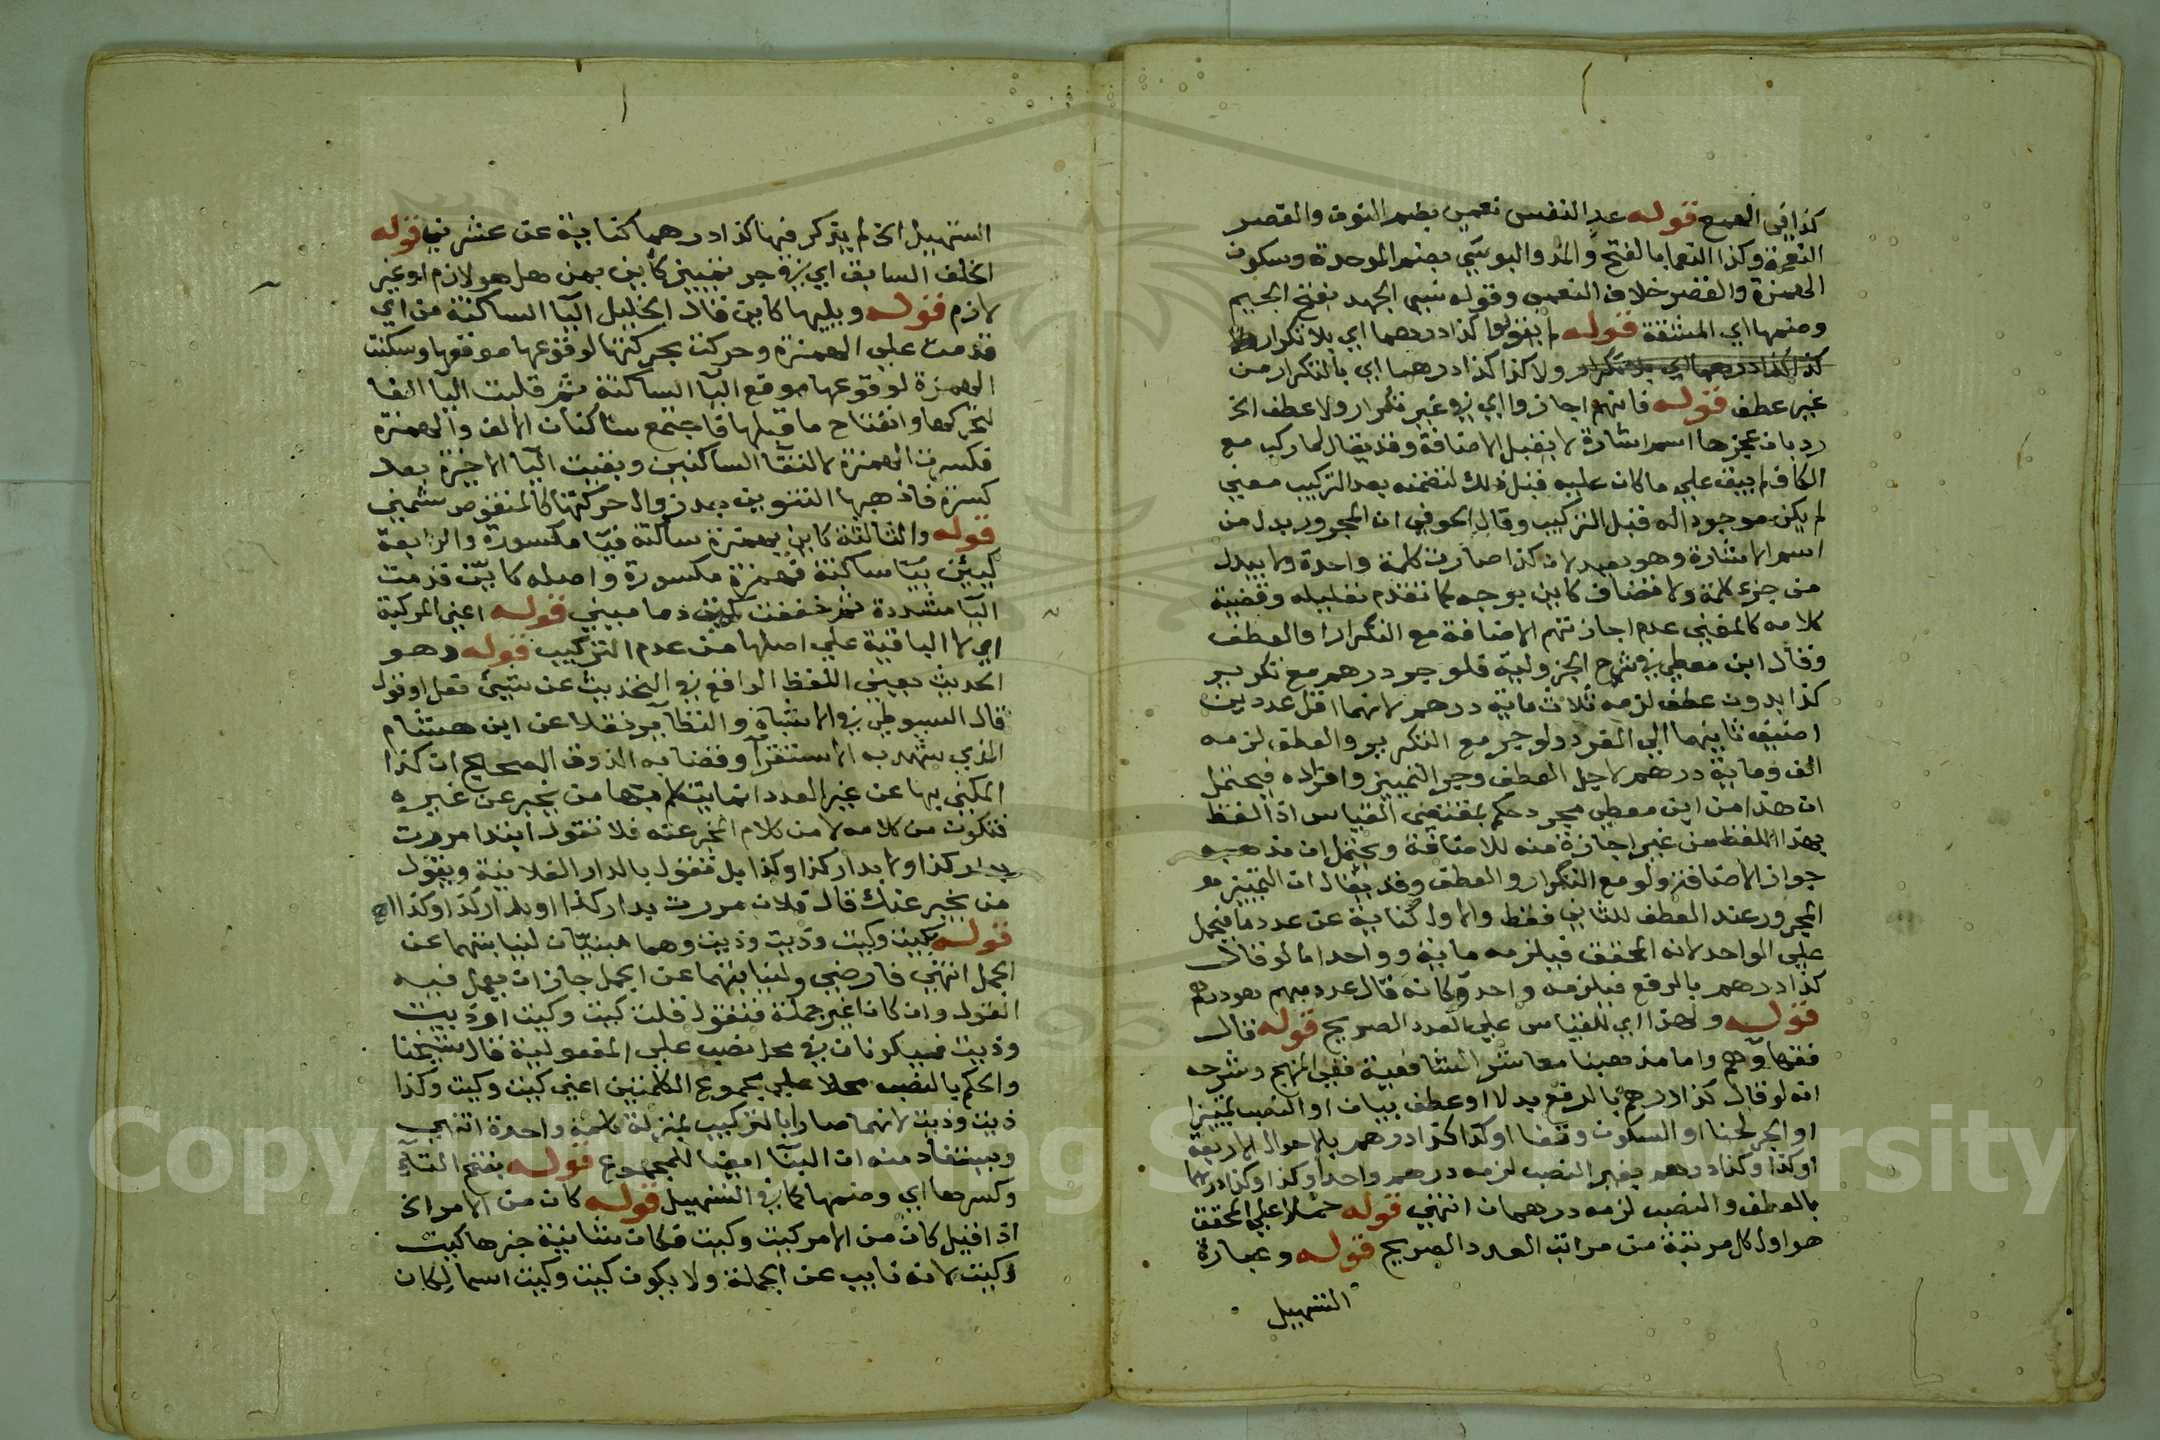 كذا في الهمع قوله عد النفس نعمى بضم النون والقصر
النعمة وكذا النعما بالفتح والمد والبوسى بضم الموحدة وسكون
الهمزة والقصر خلاف النعمى وقوله نسي الجهد بفتح الجيم
وضمها اي المشقة قوله لم يقولوا كذا درهما اي بلا تكرار
كذا كذا درهما اي بلا تكرار ولا كذا كذا درهما اي بالتكرار من
غير عطف قوله فانهم اجازوا اي في غير تكرار ولا عطف الخ
رد بان عجزها اسم اشارة لا يقبل الاضافة وقد يقال لما ركب مع
الكاف لم يبق على ما كان عليه قبل ذلك لتضمنه بعد التركيب معنى
لم يكن موجودا له قبل التركيب وقال الحوفي ان المجرور بدل من
اسم الاشارة وهو بعيد لان كذا صارت كلمة واحدة ولا يبدل
من جزء كلمة ولا تضاف كاين بوجه كما تقدم تعليله وقضية
كلامه كالمغني عدم اجازتهم الاضافة مع التكرار او العطف
وقال ابن معطي في شرح الجزولية فلو جر درهم مع تكرير
كذا بدون عطف لزمه ثلاث مائة درهم لانهما اقل عددين
اضيف ثانيهما الى المفرد ولو جر مع التكرير والعطف لزمه
الف ومائة درهم لاجل العطف وجر التمييز وافراده فيحتمل
ان هذا من ابن معطي مجرد حكم بمقتضى القياس اذا لفظ
بهذا اللفظ من غير اجازة منه للاضافة ويحتمل ان مذهبه
جواز الاضافة ولو مع التكرار والعطف وقد يقال ان التمييز
المجرور عند العطف للثاني فقط والاول كناية عن عدد ما فيحمل
على الواحد لانه المحقق فيلزمه مائة وواحد اما لو قال
كذا درهم بالرفع فيلزمه واحد وكانه قال عدد مبهم هو درهم
قوله ولهذا اي للقياس على العدد الصريح قوله قال
فقهاؤهم واما مذهبنا معاشر الشافعية ففي المنهج وشرحه
انه لو قال كذا درهم بالرفع بدلا او عطف بيان او النصب تمييزا
او الجر لحنا او السكون وقفا او كذا كذا درهم بالاحوال الاربعة
او كذا وكذا درهم بغير النصب لزمه درهم واحد او كذا وكذا درهما
بالعطف والنصب لزمه درهمان انتهى قوله حملا على المحقق
هو اول كل مرتبة من مراتب العدد الصريح قوله وعبارة
التسهيل
التسهيل الخ لم يذكر فيها كذا درهما كناية عن عشرين قوله
الخلف السابق اي في جر تمييز كأين بمن هل هو لازم او غير
لازم قوله ويليها كاين قال الخليل اليا الساكنة من اي
قدمت على الهمزة وحركت بحركتها لوقوعها موقعها وسكنت
الهمزة لوقوعها موقع اليا الساكنة ثم قلبت اليا الفا
لتحركها وانفتاح ما قبلها فاجتمع ساكنان الالف والهمزة
فكسرت الهمزة لالتقا الساكنين وبقيت اليا الاخيرة بعد
كسرة فاذهبها التنوين بعد زوال حركتها كالمنقوص شمني
قوله والثالثة كاين بهمزة ساكنة فيا مكسورة والرابعة
كيئن بيا ساكنة فهمزة مكسورة واصله كايّن قدمت
اليا مشددة ثم خففت كميت دماميني قوله اعني المركبة
اي لا الباقية على اصلها من عدم التركيب قوله وهو
الحديث يعني اللفظ الواقع في التحديث عن شيئ فعل او قول
قال السيوطي في الاشباه والنظائر نقلا عن ابن هشام
الذي شهد به الاستقرآ وقضا به الذوق الصحيح ان كذا
المكني بها عن غير العدد انما يتكلم بها من يخبر عن غيره
فتكون من كلامه لا من كلام المخبر عنه فلا تقول ابتدا مررت
بدار كذا ولا بدار كذا وكذا بل تقول بالدار الفلانية ويقول
من يخبر عنك قال فلان مررت بدار كذا او بدار كذا وكذا الخ
قوله بكيت وكيت وذيت وذيت وهما مبنيان لنيابتهما عن
الجمل انتهى فارضي ولنيابتهما عن الجمل جاز ان يعمل فيه
القول وان كانا غير جملة فتقول قلت كيت وكيت او ذيت
وذيت فيكونان في محل نصب على المفعولية قال شيخنا
والحكم بالنصب محلا على مجموع الكلمتين اعني كيت وكيت وكذا
ذيت وذيت لانهما صارا بالتركيب بمنزلة كلمة واحدة انتهى
ويستفاد منه ان البنا ايضا للمجموع قوله بفتح التآء
وكسرها اي وضمها كما في التسهيل قوله كان من الامر الخ
اذا قيل كان من الامر كيت وكيت فكان شانية خبرها كيت
وكيت لانه نايب عن الجملة ولا يكون كيت وكيت اسما لكان
Copyright © King Saud University